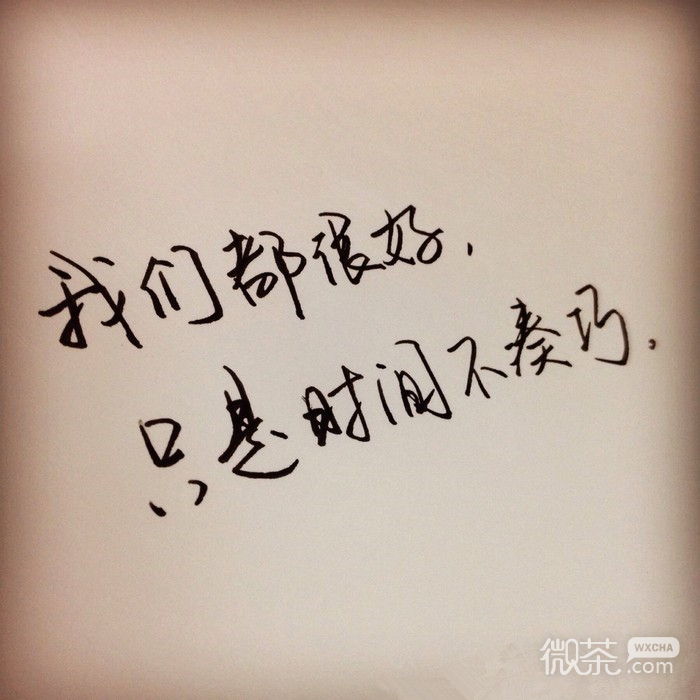 我们都很好,
只是时间不凑巧.
微茶 WXCHA .com